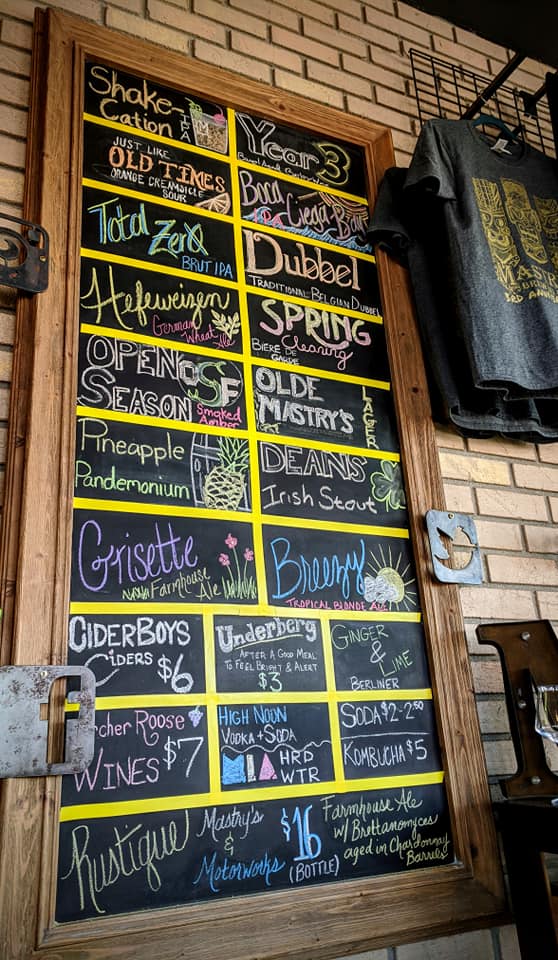 Shake-
Cation IPA
Year 3
JUST LIKE
OLD TIMES
ORANGE CREAMSICLE
SOUR
Boca Ciega Bay
IPA
Total Zero
BRUT IPA
Dubbel
TRADITIONAL BELGIAN DUBBEL
Hefeweizen
German
Wheat Ale
SPRING
Cleaning
BIERE DE
GARDE
OPEN
SEASON
Smoked
Amber
OLDE
MASTRY'S
LAGER
Pineapple
Pandemonium
DEANS
Irish Stout
Grisette
Farmhouse
Ale
Breezy
TROPICAL BLONDE ALE
CIDERBOYS
CIDERS $6
Underberg
AFTER A GOOD MEAL
TO FEEL BRIGHT & ALERT
$3
GINGER
&
LIME
BERLINER
cher Roose
WINES $7
HIGH NOON
VODKA + SODA
MIA HRD
WTR
SODA $2-2.50
KOMBUCHA $5
Rustique
Mastry's
&
Motorworks
$16
(BOTTLE)
Farmhouse Ale
w/ Brettanomyces
aged in Chardonnay
Barrels
MAS
3RD AN